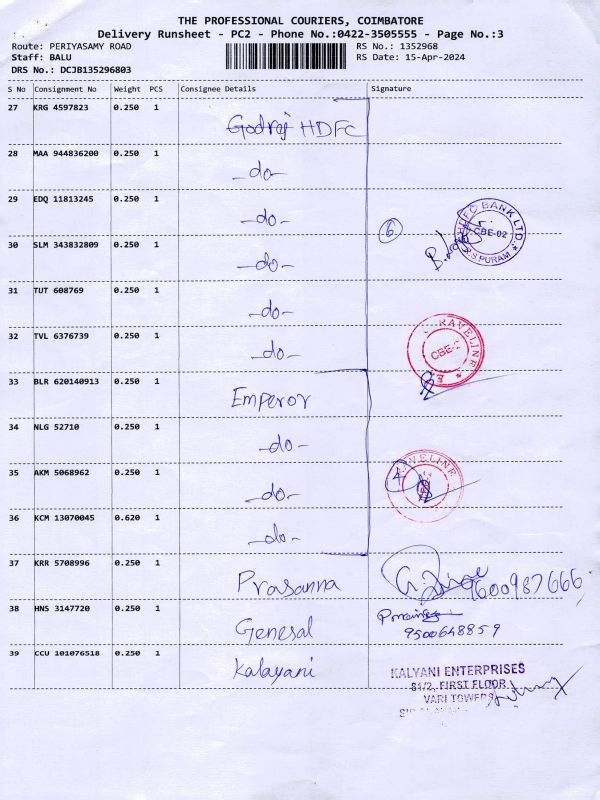 THE PROFESSIONAL COURIERS, COIMBATORE
Delivery Runsheet - PC2 - Phone No.:0422-3505555 - Page No.:3
Route: PERIYASAMY ROAD RS No.: 1352968
Staff: BALU RS Date: 15-Apr-2024
DRS No.: DCJB135296803
S No Consignment No Weight PCS Consignee Details Signature
27 KRG 4597823 0.250 1
Godraj HDFC
28 MAA 944836200 0.250 1
-do-
29 EDQ 11813245 0.250 1
-do- 6
HDFC BANK LTD.
CBE-02
R.S PURAM
30 SLM 343832809 0.250 1
-do-
31 TUT 608769 0.250 1
-do-
32 TVL 6376739 0.250 1
-do-
CBE-2
33 BLR 620140913 0.250 1
Emperor
34 NLG 52710 0.250 1
-do-
35 AKM 5068962 0.250 1
-do- 4
36 KCM 13070045 0.620 1
-do-
37 KRR 5708996 0.250 1
Prasanna 9600987666
38 HNS 3147720 0.250 1
Genesal
9500648859
39 CCU 101076518 0.250 1
Kalayani
KALYANI ENTERPRISES
81/2, FIRST FLOOR
VARI TOWERS